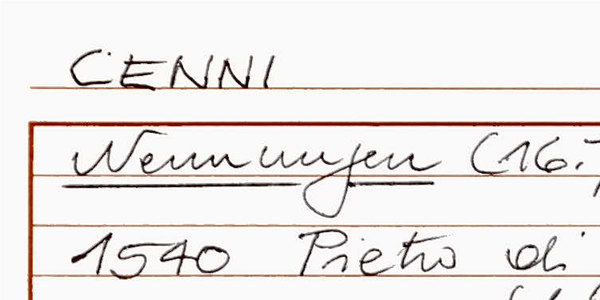 CENNI
Nennungen (16.
1540 Pietro di